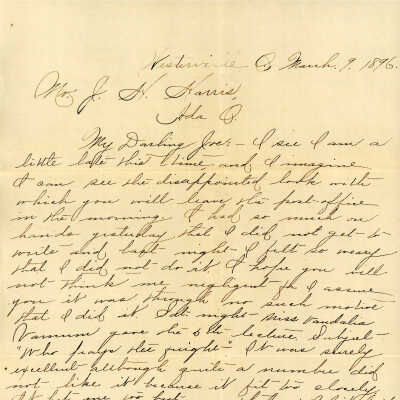 Westerville O, March. 9. 1896.
Mr J. H. Harris,
Ada O.
My Darling Joe:- I see I am a
little late this time and I imagine
I can see the disappointed look with
which you will leave the post-office
in the morning. I had so much on
hands yesterday that I did not get to
write and last night I felt so weary
that I did not do it. I hope you will
not think me negligent for I assure
you it was through no such motive
that I did it. Sat. night Miss Vandalia
Varnum gave the 5th lecture. Subject-
"Who pays the freight". It was surely
excellent although quite a number did
not like it because it fit too closely.
It hit me too but